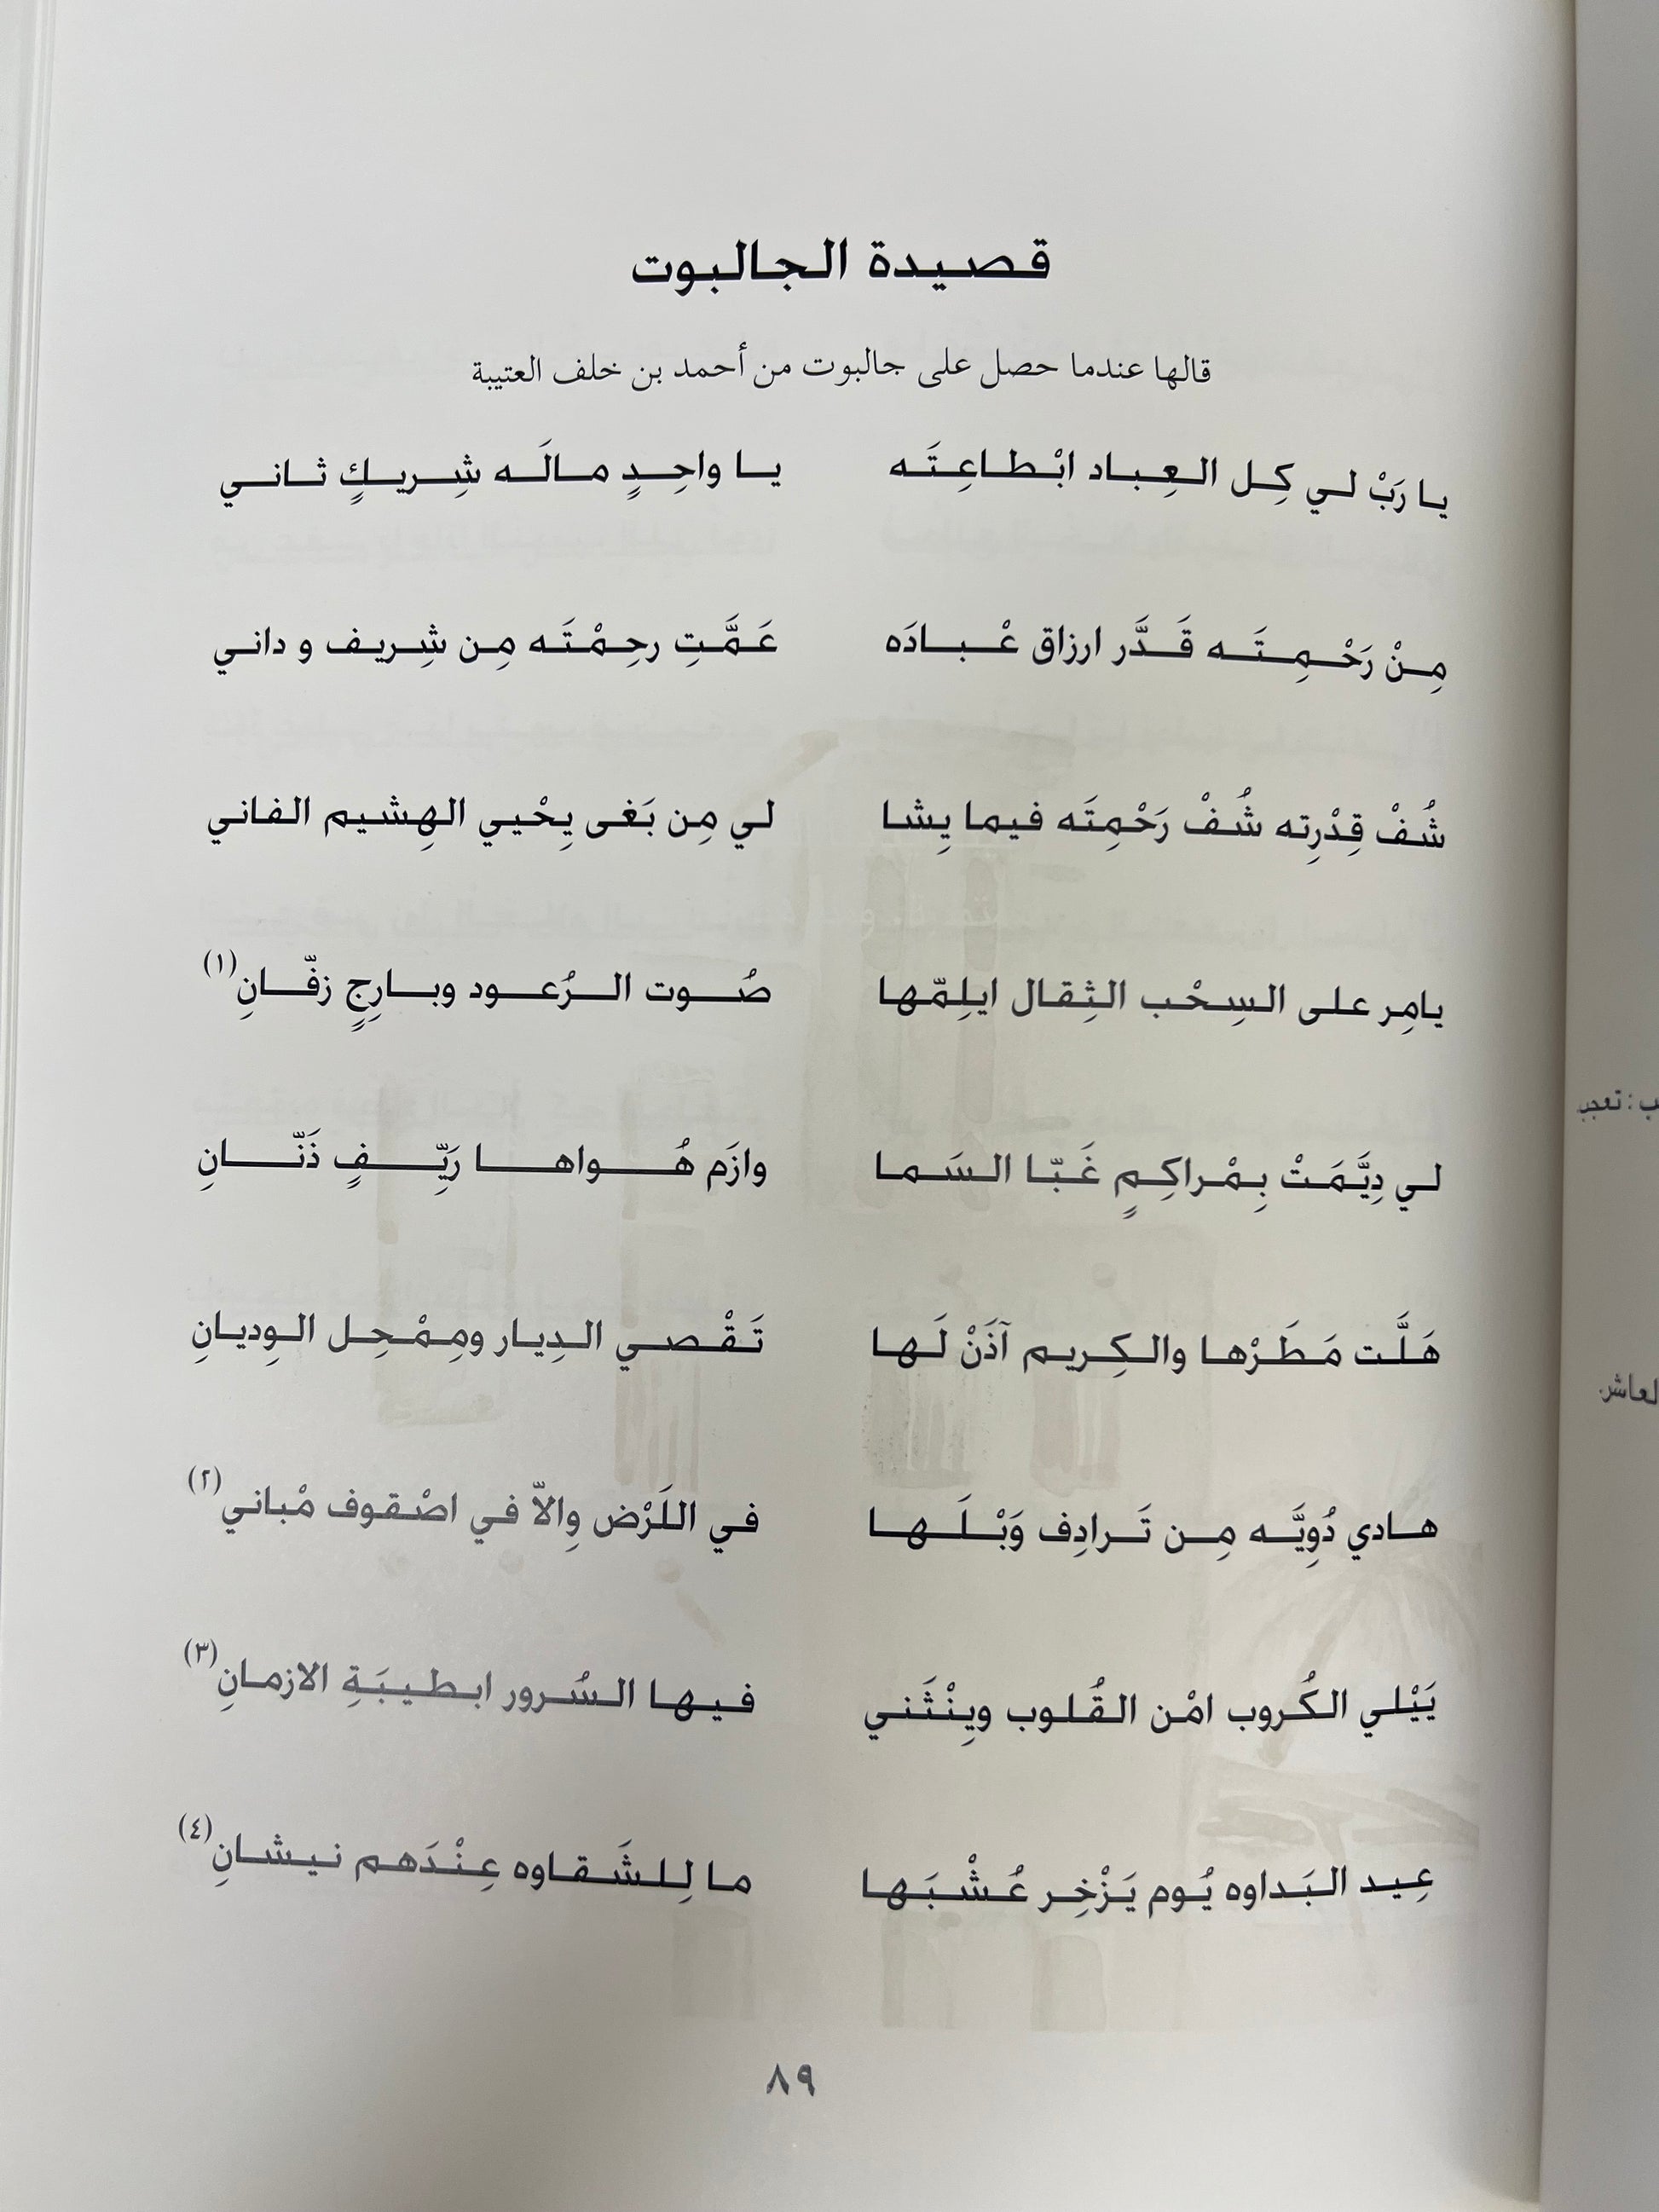 قصيدة الجالبوت
قالها عندما حصل على جالبوت من أحمد بن خلف العتيبة
يا رَبْ لي كِل العِباد ابْطاعِتَه يا واحِدٍ مالَه شِريكٍ ثاني
مِنْ رَحْمِتَه قَدَّر ارزاق عْبادَه عَمَّتِ رحِمْتَه مِن شِريف و داني
شُفْ قِدْرِته شُفْ رَحْمِتَه فيما يِشا لي مِن بَغى يِحْيي الهِشيم الفاني
يامِر على السِحْب الثِقال ايلِمّها صُوت الرُعود وبارِجٍ زفّانِ(١)
لي دِيَّمَتْ بِمْراكِمٍ غَبّا السَما وازَم هُواها رَيِّفٍ ذَنّانِ
هَلَّت مَطَرْها والكِريم آذَنْ لَها تَقْصي الدِيار ومِمْحِل الوِديانِ
هادي دُوِيَّه مِن تَرادِف وَبْلَها في اللَرْض وِالاّ في اصْقوف مْباني(٢)
يَيْلي الكُروب امْن القُلوب وينْثَني فيها السُرور ابطيبَةِ الازمانِ(٣)
عِيد البَداوه يُوم يَزْخِر عُشْبَها ما لِلشَقاوه عِنْدَهم نيشانِ(٤)
٨٩
ب : تعجب
لعاشر.